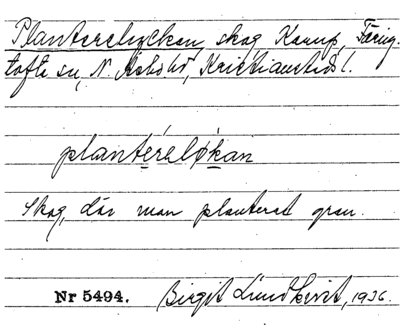 Planterelyckan, skog, Karup, Färing-
tofta sn, N. Åsbo hd, Kristianstads l.
plantéreløkan
Skog, där man planterat gran.
Nr 5494. Birgit Lundkvist, 1936.